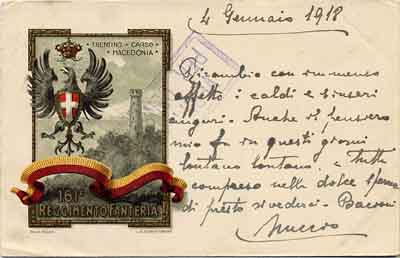 4 Gennaio 1918
TRENTINO - CARSO -
MACEDONIA -
Ricambio con immenso
affetto i caldi e sinceri
auguri. Anche il pensiero
mio fu in questi giorni
lontano lontano. Tutto
compreso nella dolce spema
di presto rivederci - Bacioni
161º
REGGIMENTO FANTERIA